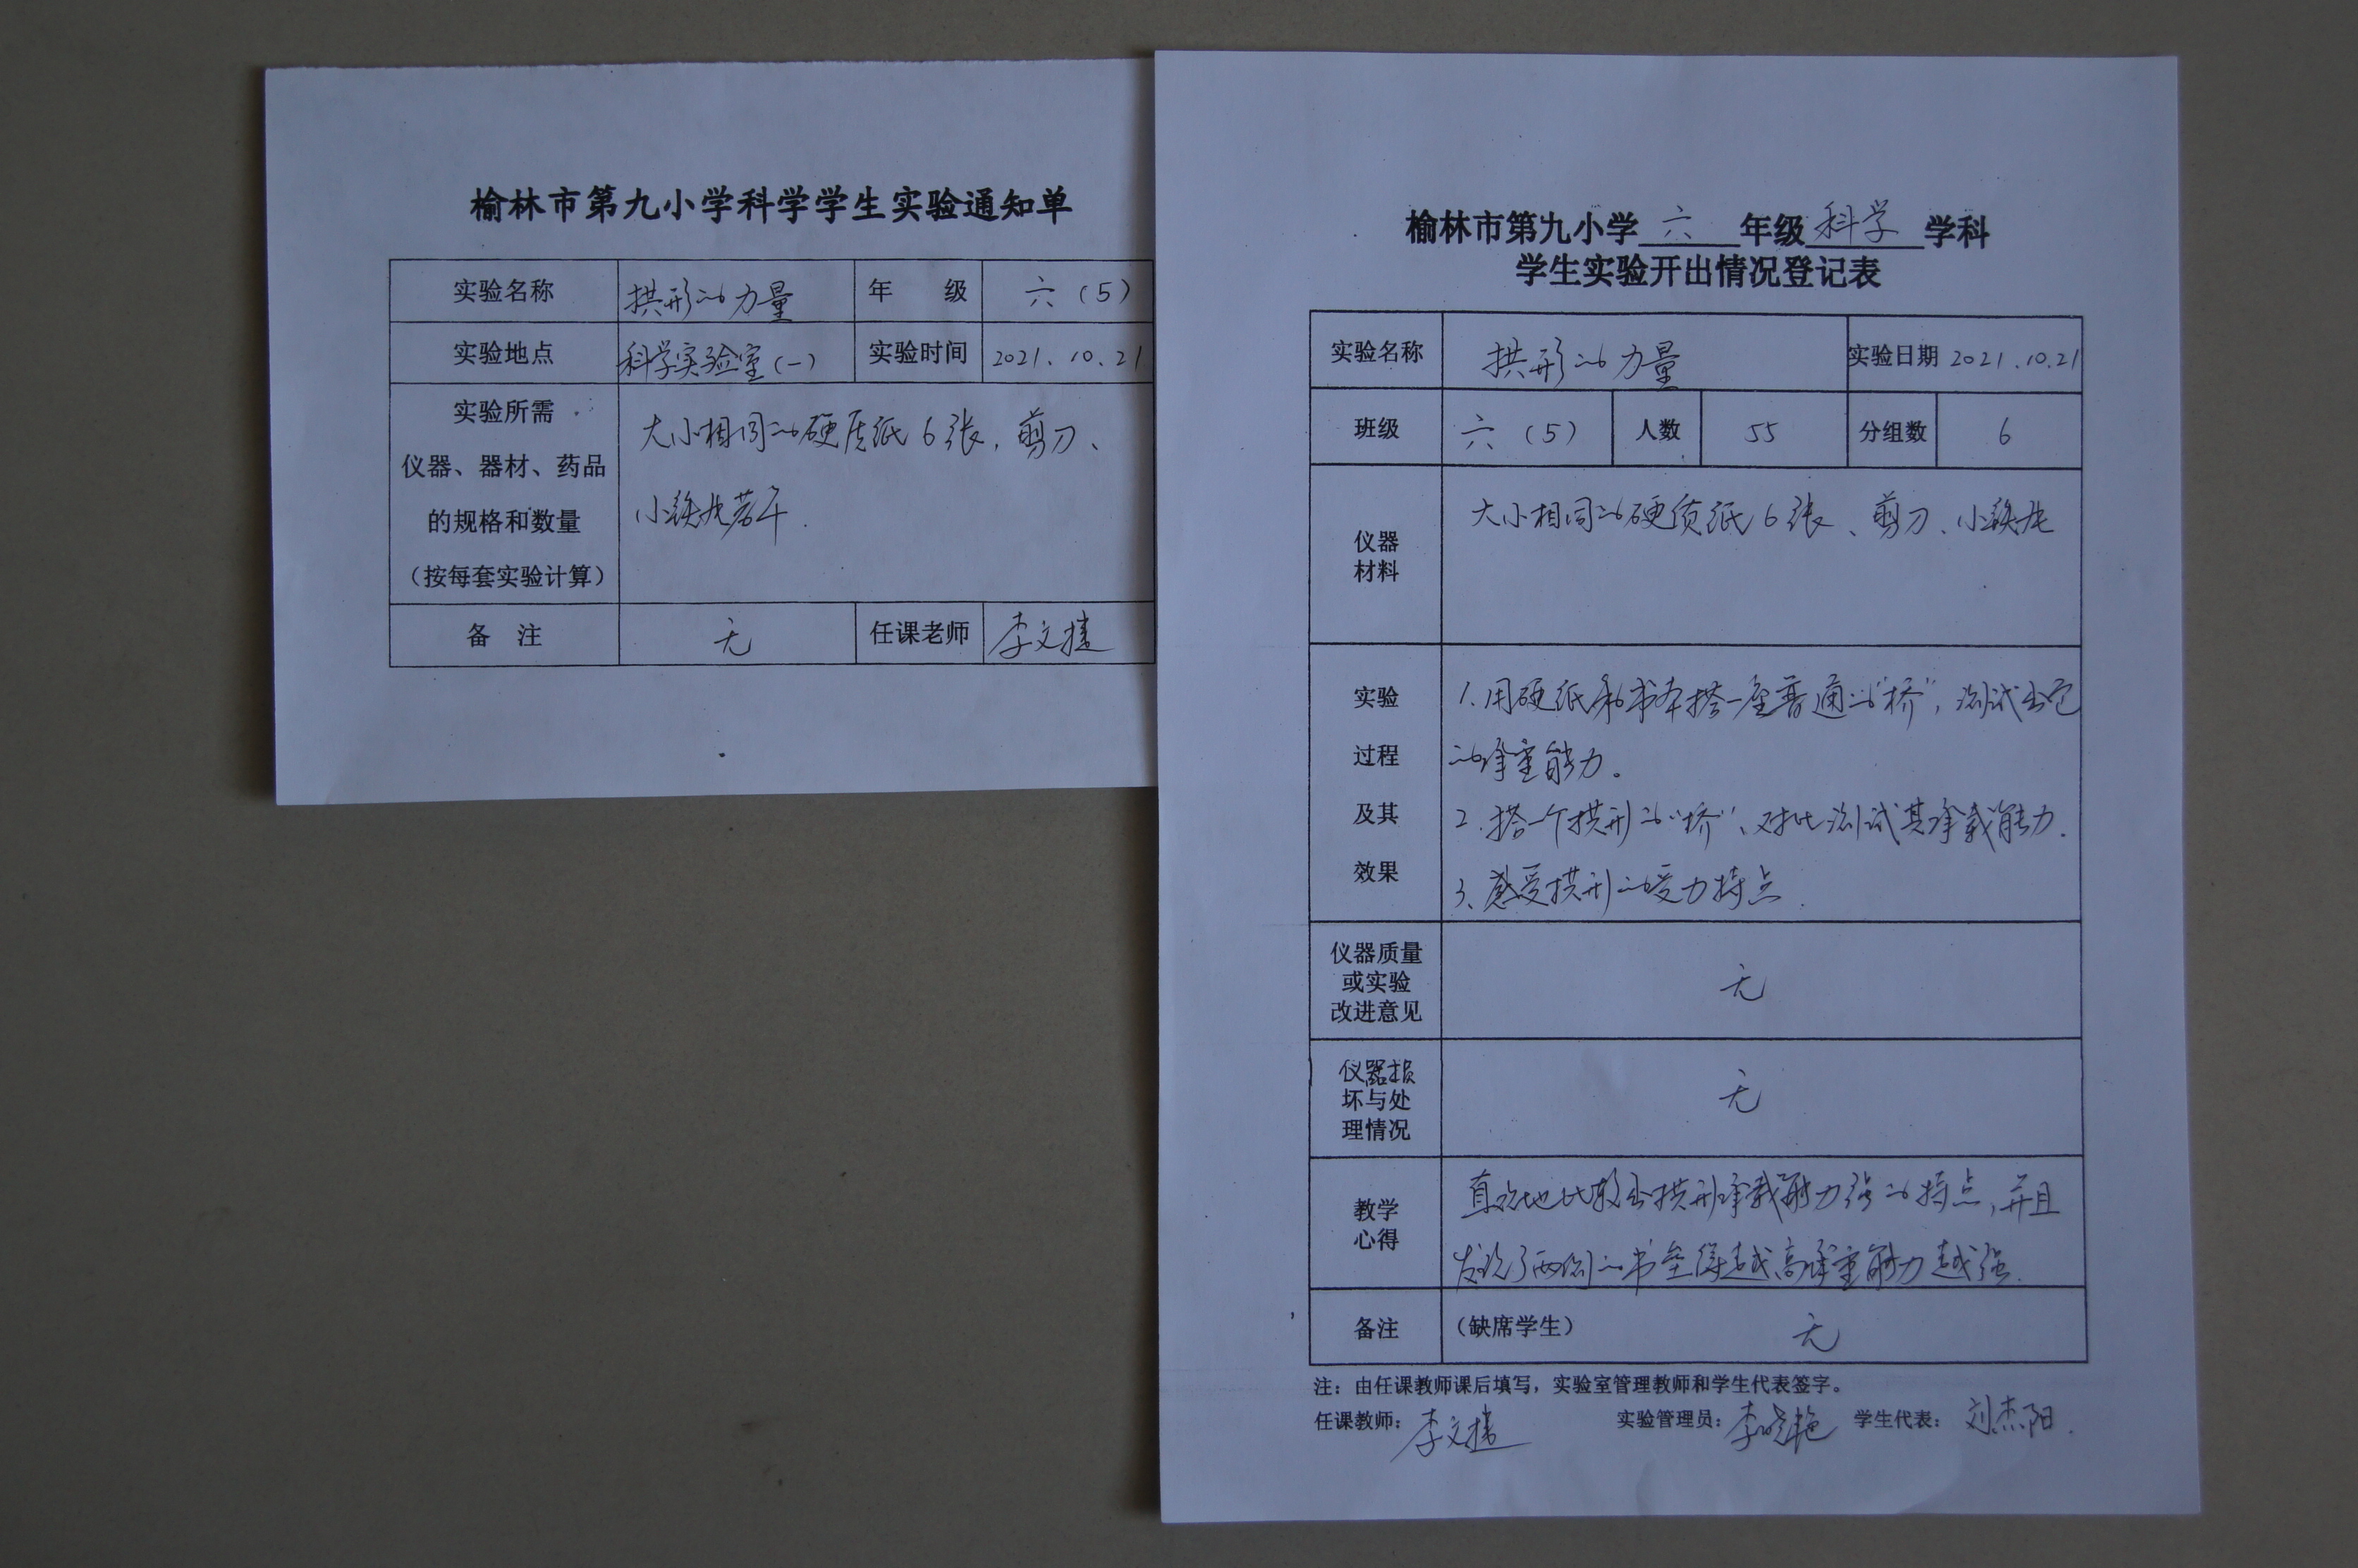 榆林市第九小学科学学生实验通知单
实验名称 拱形的力量 年 级 六（5）
实验地点 科学实验室（一） 实验时间 2021.10.21
实验所需
仪器、器材、药品
的规格和数量
（按每套实验计算）
大小相同的硬质纸6张，剪刀、
小铁块若干.
备 注 无 任课老师 李文
榆林市第九小学 六 年级 科学 学科
学生实验开出情况登记表
实验名称 拱形的力量 实验日期 2021.10.21
班级 六（5） 人数 55 分组数 6
仪器
材料
大小相同的硬质纸6张、剪刀、小铁块
实验
过程
及其
效果
1.用硬纸和书本搭一座普通的“桥”，测试出它
的承重能力。
2.搭一个拱形的“桥”、对比测试其承载能力.
3、感受拱形的受力特点.
仪器质量
或实验
改进意见
无
仪器损
坏与处
理情况
无
教学
心得
直观地比较出拱形承载能力强的特点，并且
发现了两侧的书垒得越高承重能力越强.
备注 （缺席学生） 无
注：由任课教师课后填写，实验室管理教师和学生代表签字。
任课教师： 李文 实验管理员： 李晓艳 学生代表： 刘杰阳.